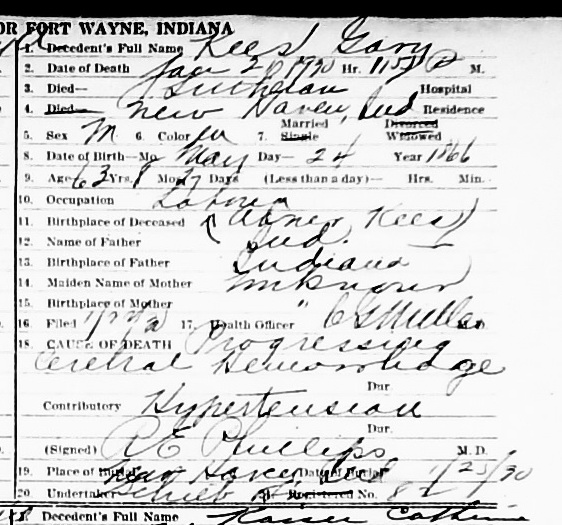 OR FORT WAYNE, INDIANA
1. Decedent's Full Name Kees Gary
2. Date of Death Jan 2 1930 Hr. 1150 P M.
3. Died— Lutheran Hospital
4. Died— New Haven, Ind Residence
5. Sex M 6. Color W 7. Married Single Divorced Widowed
8. Date of Birth—Mo. May Day— 24 Year 1866
9. Age 63 Yrs. 8 Mo. 27 Days (Less than a day)— Hrs. Min.
10. Occupation Labor
11. Birthplace of Deceased (Abner Kees)
12. Name of Father Ind.
13. Birthplace of Father Indiana
14. Maiden Name of Mother Unknown
15. Birthplace of Mother "
16. Filed 17. Health Officer M.D.
18. CAUSE OF DEATH Progressing
Cerebral Hemorrhage
Dur.
Contributory Hypertension
Dur.
(Signed) R E Phillips M. D.
19. Place of Burial New Haven Ind Date of Burial 1/25/30
20. Undertaker 21 Registered No. 82
Decedent's Full Name Kaiser Catherine